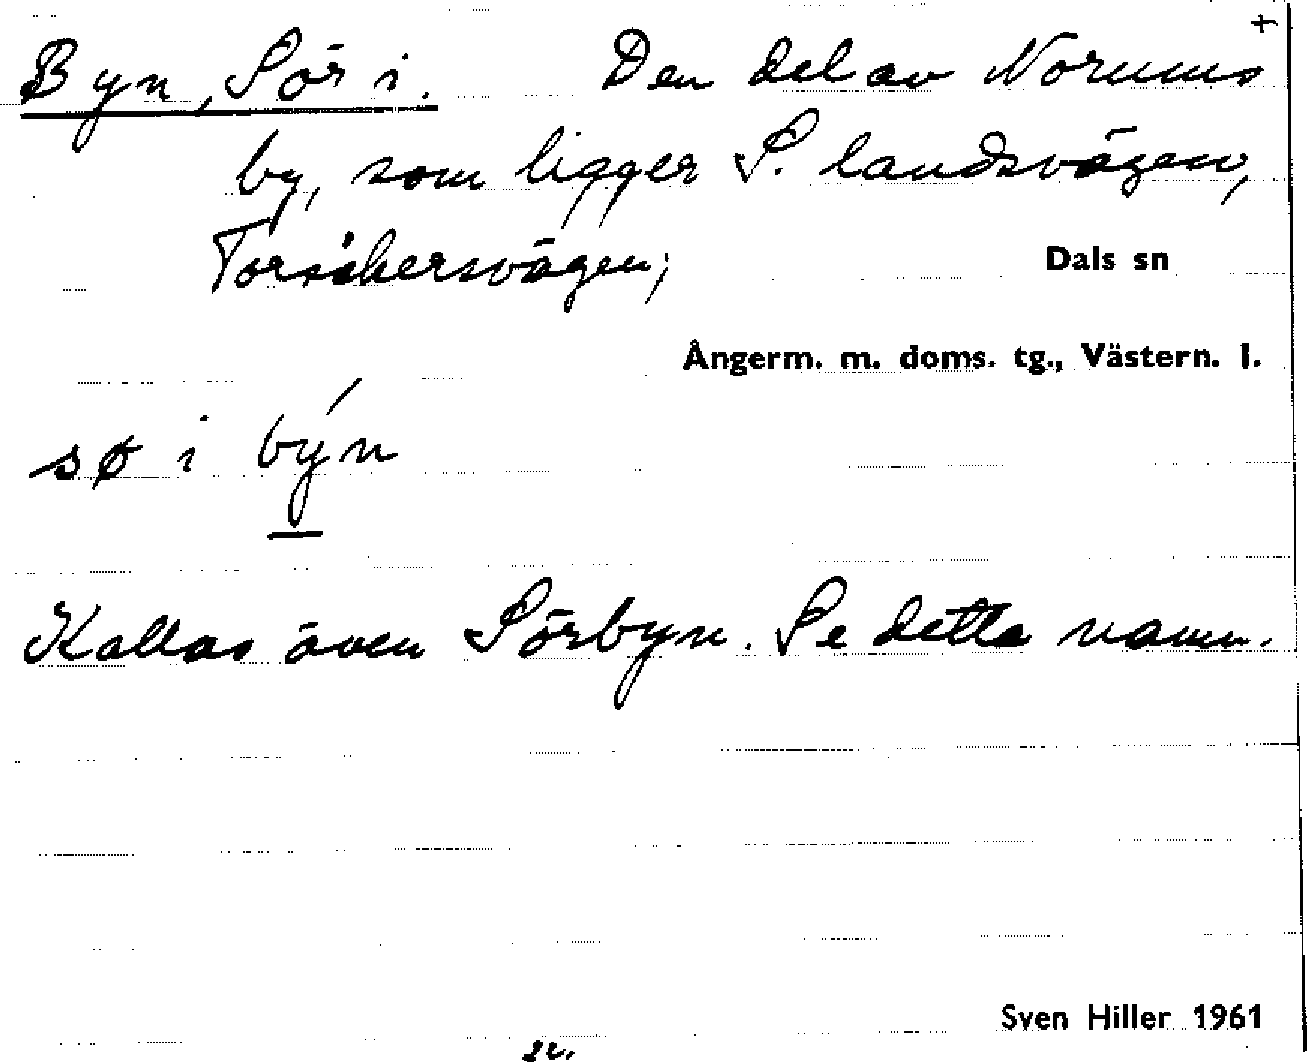 +
Byn, Sör i. Den del av Norums
by, som ligger S. landsvägen,
Torsåkersvägen;
Dals sn
Ångerm. m. doms. tg., Västern. l.
sø i býn
Kallas även Sörbyn. Se detta namn.
Sven Hiller 1961